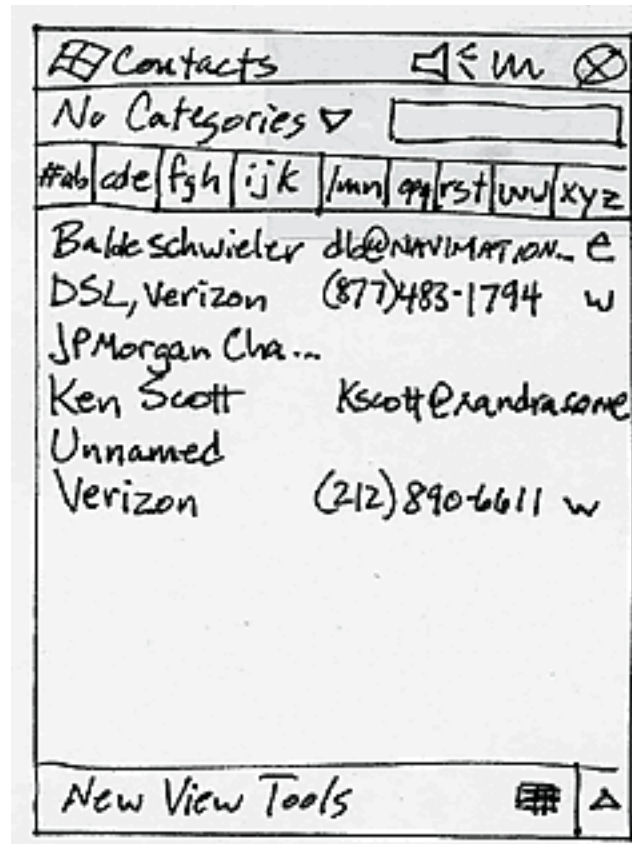 Contacts
No Categories
#ab cde fgh ijk lmn opq rst uvw xyz
Baldeschwieler db@NAVIMATION... e
DSL, Verizon (877)483-1794 w
JPMorgan Cha...
Ken Scott
Unnamed
Verizon (212)890-6611 w
New View Tools